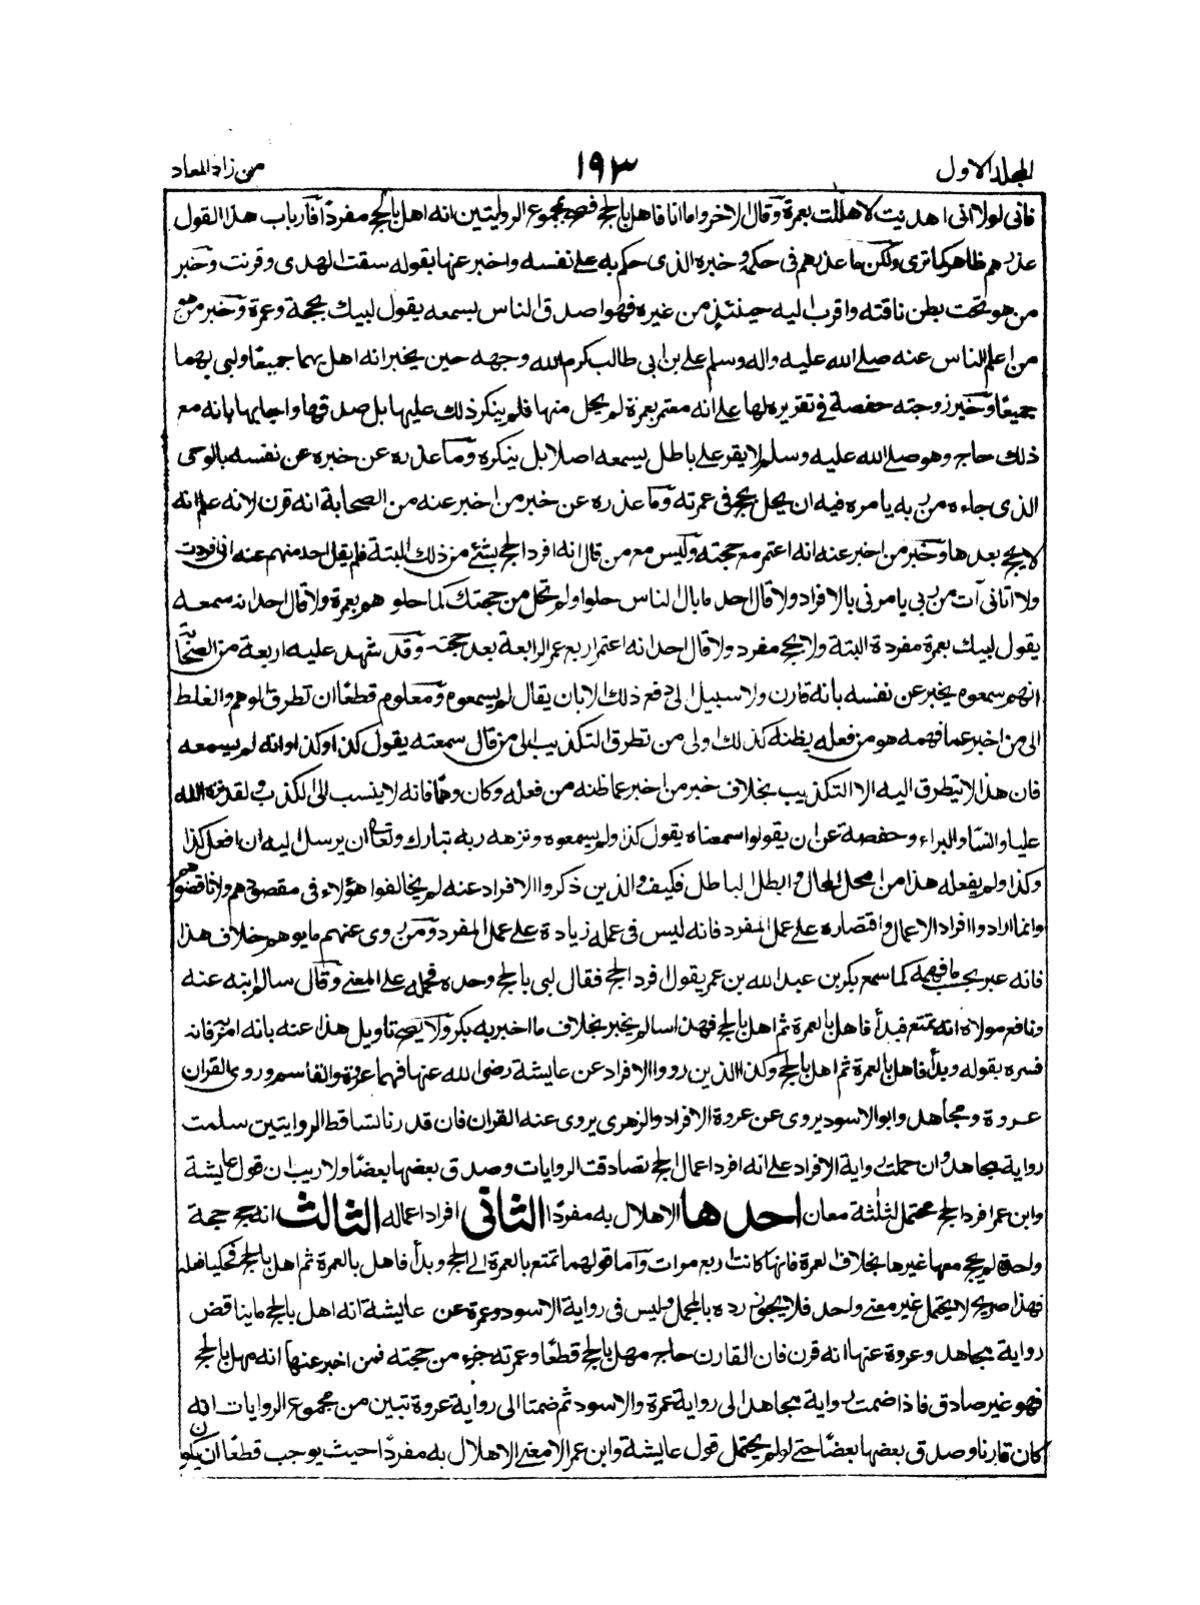 المجلد الاول
١٩٣
من زاد المعاد
فانى لولا انى اهديت لاهللت بعمرة وقال الاخر واما انا فاهل بالحج فصح بمجموع الروايتين انه اهل بالحج مفردا فارباب هذا القول
عذرهم ظاهر كما ترى ولكن ما عذرهم فى حكمه وخبره الذى حكم به على نفسه واخبر عنها بقوله سقت الهدى وقرنت وخبر
من هو تحت بطن ناقته واقرب اليه حينئذ من غيره فهو اصدق الناس يسمعه يقول لبيك بحجة وعمرة وخبر من هو
من اعلم الناس عنه صلى الله عليه واله وسلم على بن ابى طالب كرم الله وجهه حين يخبر انه اهل بهما جميعا ولبى بهما
جميعا وخبر زوجته حفصة فى تقريره لها على انه معتمر بعمرة لم يحل منها فلم ينكر ذلك عليها بل صدقها واجابها بانه مع
ذلك حاج وهو صلى الله عليه وسلم لا يقر على باطل يسمعه اصلا بل ينكره وما عذره عن خبره عن نفسه بالوحى
الذى جاءه من ربه يامره فيه ان يهل بحج فى عمرته وما عذره عن خبر من اخبر عنه من الصحابة انه قرن لانه علم انه
لا يحج بعدها وخبر من اخبر عنه انه اعتمر مع حجته وليس مع من قال انه افرد الحج بشئ من ذلك البتة فلم يقل احد منهم عنه انى افردت
ولا اتانى آت من ربى يامرنى بالافراد ولا قال احد ما بال الناس حلوا ولم تحل من حجتك كما حلو هم بعمرة ولا قال احد انه سمعه
يقول لبيك بعمرة مفردة البتة ولا بحج مفرد ولا قال احد انه اعتمر اربع عمر الرابعة بعد حجته وقد شهد عليه اربعة من الصحابة
انهم سمعوه يخبر عن نفسه بانه قارن ولا سبيل الى دفع ذلك الا بان يقال لم يسمعوه ومعلوم قطعا ان تطرق الوهم والغلط
الى من اخبر عما فهمه هو من فعله يظنه كذلك اولى من تطرق التكذيب الى من قال سمعته يقول كذا وكذا وانه لم يسمعه
فان هذا لا يتطرق اليه الا التكذيب بخلاف خبر من اخبر عما ظنه من فعله وكان وهما فانه لا ينسب الى الكذب ولقد نزه الله
عليا وانسا والبراء وحفصة عن ان يقولوا سمعناه يقول كذا ولم يسمعوه ونزهه ربه تبارك وتعالى ان يرسل اليه ان افعل كذا
وكذا ولم يفعله هذا من امحل المحال وابطل الباطل فكيف والذين ذكروا الافراد عنه لم يخالفوا هؤلاء فى مقصودهم ولا ناقضوهم
وانما ارادوا افراد الاعمال واقتصاره على عمل المفرد فانه ليس فى عمله زيادة على عمل المفرد ومن روى عنهم ما يوهم خلاف هذا
فانه عبر بحسب ما فهمه كما سمع بكر بن عبد الله بن عمر يقول افرد الحج فقال لبى بالحج وحده فحمله على المعنى وقال سالم ابنه عنه
ونافع مولاه انه تمتع فبدأ فاهل بالعمرة ثم اهل بالحج فهذا سالم يخبر بخلاف ما اخبر به بكر ولا يصح تاويل هذا عنه بانه امر به فانه
فسره بقوله وبدأ فاهل بالعمرة ثم اهل بالحج وكذا الذين رووا الافراد عن عايشة رضى الله عنها فهما عروة والقاسم وروى القران
عروة ومجاهد وابو الاسود يروى عن عروة الافراد والزهرى يروى عنه القران فان قدرنا تساقط الروايتين سلمت
رواية مجاهد وان حملت رواية الافراد على انه افرد اعمال الحج تصادقت الروايات وصدق بعضها بعضا ولا ريب ان قول عايشة
وابن عمر افرد الحج محتمل لثلثة معان احدها الاهلال به مفردا الثانى افراد اعماله الثالث انه حج حجة
واحدة لم يحج معها غيرها بخلاف العمرة فانها كانت اربع مرات واما قولهما تمتع بالعمرة الى الحج وبدأ فاهل بالعمرة ثم اهل بالحج فحكيا فعله
فهذا صريح لا يحتمل غير معنى واحد فلا يجوز رده بالمجمل وليس فى رواية الاسود وعمرة عن عايشة انه اهل بالحج ما يناقض
رواية مجاهد وعروة عنها انه قرن فان القارن حاج مهل بالحج قطعا وعمرته جزء من حجته فمن اخبر عنها انه مهل بالحج
فهو غير صادق فاذا ضمت رواية مجاهد الى رواية عمرة والاسود ثم ضمتا الى رواية عروة تبين من مجموع الروايات انه
كان قارنا وصدق بعضها بعضا حتى لو لم يحتمل قول عايشة وابن عمر الا معنى الاهلال به مفردا حيث يوجب قطعا ان يكون